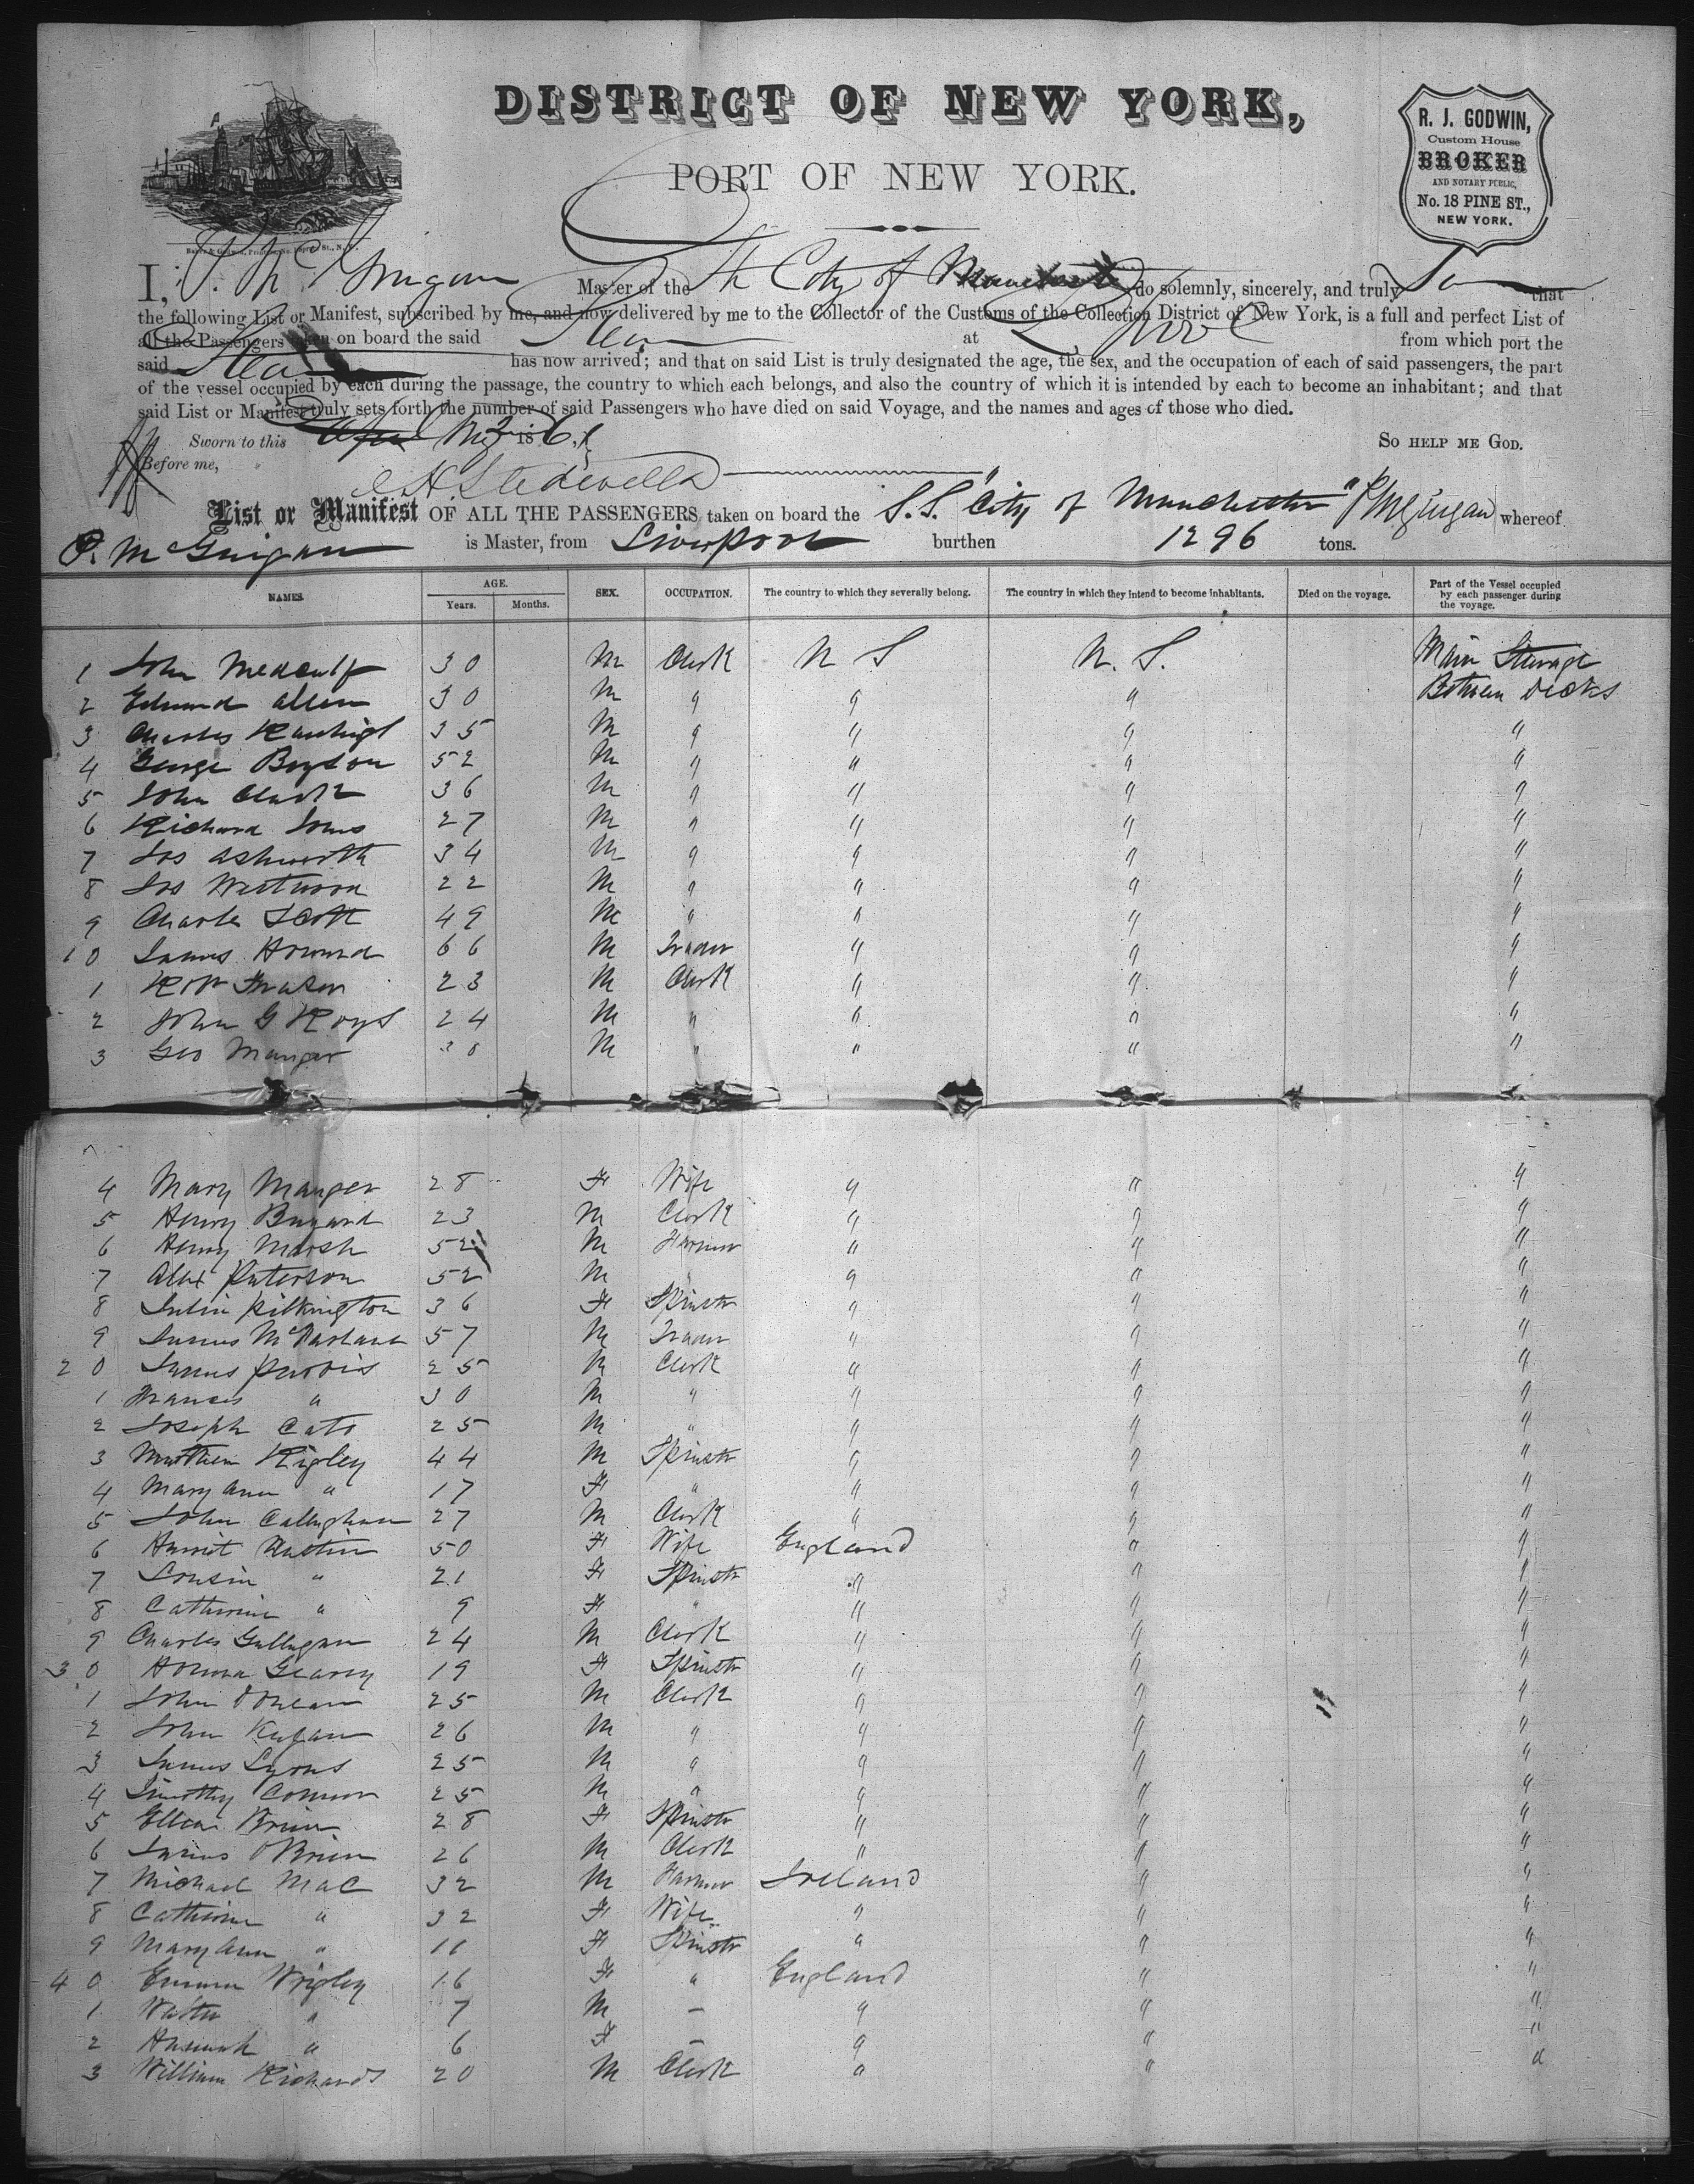 DISTRICT OF NEW YORK,
PORT OF NEW YORK.
R. J. GODWIN,
Custom House
BROKER
AND NOTARY PUBLIC,
No. 18 PINE ST.,
NEW YORK.
I, Master of the City of do solemnly, sincerely, and truly that
the following List or Manifest, subscribed by me, and now delivered by me to the Collector of the Customs of the Collection District of New York, is a full and perfect List of
all the Passengers taken on board the said at from which port the
said has now arrived; and that on said List is truly designated the age, the sex, and the occupation of each of said passengers, the part
of the vessel occupied by each during the passage, the country to which each belongs, and also the country of which it is intended by each to become an inhabitant; and that
said List or Manifest truly sets forth the number of said Passengers who have died on said Voyage, and the names and ages of those who died.
Sworn to this 186 SO HELP ME GOD.
Before me,
List or Manifest OF ALL THE PASSENGERS taken on board the S.S. "City of Manchester" whereof
P. McGuigan is Master, from Liverpool burthen 1296 tons.
NAMES. AGE. Years. Months. SEX. OCCUPATION. The country to which they severally belong. The country in which they intend to become inhabitants. Died on the voyage. Part of the Vessel occupied by each passenger during the voyage.
1 John Medcalf 30 M Clerk U S U. S. Main Steerage
2 Edmund Allen 30 M " " " Between Decks
3 Charles 35 M " " " "
4 George Boyson 52 M " " " "
5 John Clark 36 M " " " "
6 Richard Johns 27 M " " " "
7 Jos Ashworth 34 M " " " "
8 Jos Westwood 22 M " " " "
9 Charles Scott 49 M " " " "
10 James Howard 66 M Trader " " "
1 Robt Fraser 23 M Clerk " " "
2 John G Roys 24 M " " " "
3 Geo Manger 30 M " " " "
4 Mary Manger 28 F Wife " " "
5 Henry 23 M Clerk " " "
6 Henry Marsh 52 M Farmer " " "
7 Alex Paterson 52 M " " " "
8 Julia Pilkington 36 F Spinstr " " "
9 James McFarlane 57 M Trader " " "
20 James Purvis 25 M Clerk " " "
1 Frances " 30 M " " " "
2 Joseph Cato 25 M " " " "
3 Matthew Rigley 44 M Spinstr " " "
4 Mary Ann " 17 F " " " "
5 John Callaghan 27 M Clerk " " "
6 Harriet Austin 50 F Wife England " "
7 Louisa " 21 F Spinstr " " "
8 Catherine " 9 F " " " "
9 Charles Gallagan 24 M Clerk " " "
30 Honora Geary 19 F Spinstr " " "
1 John 25 M Clerk " " "
2 John 26 M " " " "
3 James Lyons 25 M " " " "
4 Timothy Connor 25 M " " " "
5 Ellen Brien 28 F Spinstr " " "
6 James OBrien 26 M Clerk " " "
7 Michael Mac 32 M Farmer Ireland " "
8 Catherine " 32 F Wife " " "
9 Mary Ann " 11 F Spinstr " " "
40 Emma Wrigley 16 F " England " "
1 Walter " 7 M - " " "
2 Hannah " 6 F - " " "
3 William Richards 20 M Clerk " " "